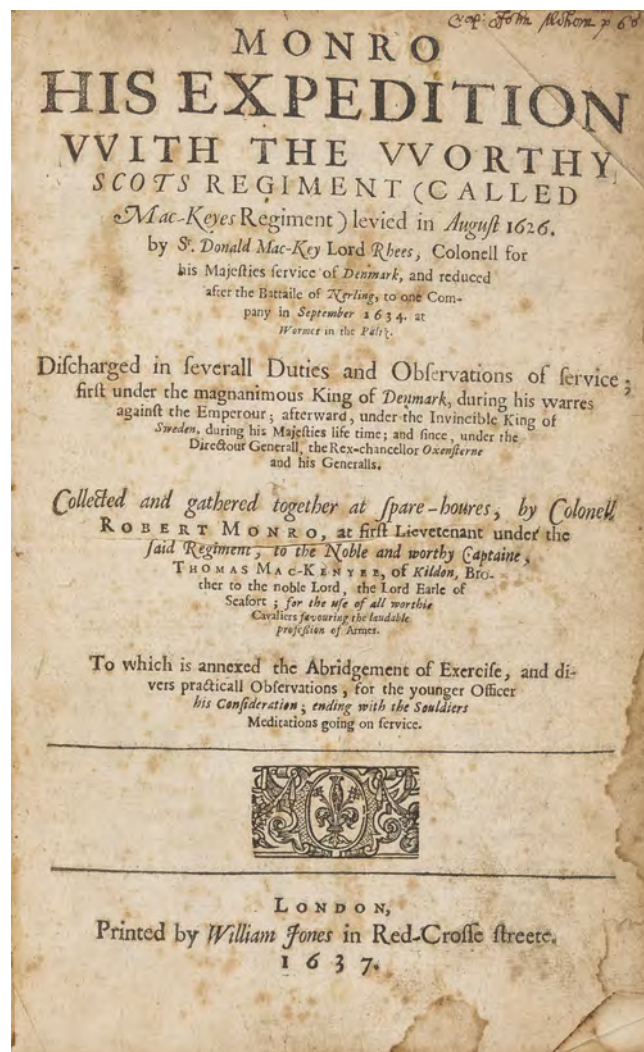 Cap: John p 60
MONRO
HIS EXPEDITION
VVITH THE VVORTHY
SCOTS REGIMENT (CALLED
Mac-Keyes Regiment) levied in Auguſt 1626.
by Sr. Donald Mac-Key Lord Rhees, Colonell for
his Majeſties ſervice of Denmark, and reduced
after the Battaile of Nerling, to one Com-
pany in September 1634. at
Wormes in the Paltz.
Diſcharged in ſeverall Duties and Obſervations of ſervice;
firſt under the magnanimous King of Denmark, during his warres
againſt the Emperour; afterward, under the Invincible King of
Sweden, during his Majeſties life time; and ſince, under the
Directour Generall, the Rex-chancellor Oxenſterne
and his Generalls.
Collected and gathered together at ſpare-houres, by Colonell
ROBERT MONRO, at firſt Lievetenant under the
ſaid Regiment, to the Noble and worthy Captaine,
THOMAS MAC-KENYEE, of Kildon, Bro-
ther to the noble Lord, the Lord Earle of
Seafort; for the uſe of all worthie
Cavaliers favouring the laudable
profeſſion of Armes.
To which is annexed the Abridgement of Exerciſe, and di-
vers practicall Obſervations, for the younger Officer
his Conſideration; ending with the Souldiers
Meditations going on ſervice.
LONDON,
Printed by William Jones in Red-Croſſe ſtreete.
1637.